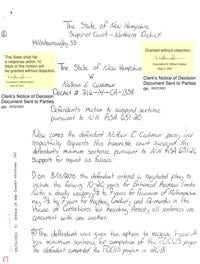 The State of New Hampshire
Superior Court - Northern District
Hillsborough, SS
The State shall file
a response within 10
days or the motion will
be granted without objection.
Clerk's Notice of Decision
Document Sent to Parties
on
The State of New Hampshire
V.
Nathan E. Cushman
Docket #
Granted without objection.
Clerk's Notice of Decision
Document Sent to Parties
on
Defendants motion to suspend sentence
pursuant to N.H. RSA 651:20
Now comes the defendant Nathan E Cushman pro se, and
respectfully requests this honorable court suspend the
defendants minimum sentence, pursuant to N.H RSA 651:20
Support for request is as follows
On 8/13/2015 the defendant entered a negotiated plea to
include the following 10-20 years for Enhanced Reckless Conduct
with a deadly weapon, 3½-7 years for Possession of Methamphetamine,
3½-7 years for Reckless Conduct, and 12 months in the
House of Corrections for Resisting Arrest, all sentences are
concurrent with one another.
The defendant was given the option to receive
his minimum sentence for completion of the FOCUS program
The defendant completed the FOCUS program in 2018